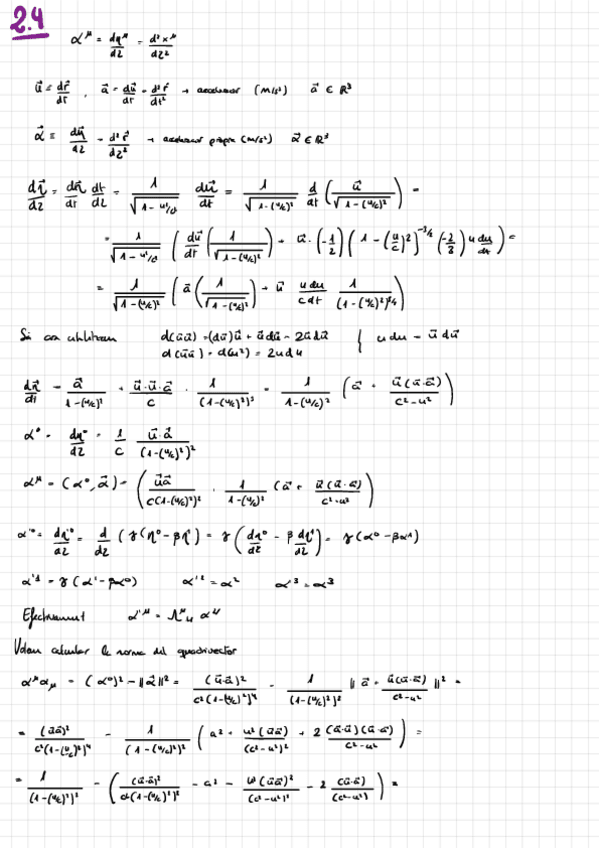 2.4
α^μ = dη^μ/dτ = d²x^μ/dτ²
u⃗ = dr⃗/dt , a⃗ = du⃗/dt = d²r⃗/dt² → acceleració (m/s²) a⃗ ∈ R³
α⃗ = dη⃗/dτ = d²r⃗/dτ² → acceleració pròpia (m/s²) α⃗ ∈ R³
dη⃗/dτ = dη⃗/dt dt/dτ = 1/√(1 - u²/c²) dη⃗/dt = 1/√(1-(u/c)²) d/dt ( u⃗/√(1-(u/c)²) ) =
= 1/√(1 - u²/c²) ( du⃗/dt ( 1/√(1-(u/c)²) ) + u⃗ · (-1/2) ( 1 - (u/c)² )^-3/2 u du/dt ) =
= 1/√(1-(u/c)²) ( a⃗ ( 1/√(1-(u/c)²) ) + u⃗ u du/c dt 1/(1-(u/c)²)
Si d(u⃗u⃗) = (du⃗)u⃗ + u⃗du⃗ = 2u⃗du⃗ { u du = u⃗ du⃗
d(u⃗u⃗) = d(u²) = 2udu
dη⃗/dτ = a⃗/1-(u/c)² + u⃗·u⃗·a⃗/c · 1/(1-(u/c)²)² = 1/1-(u/c)² ( a⃗ + u⃗(u⃗·a⃗)/c²-u² )
α⁰ = dη⁰/dτ = 1/c u⃗·a⃗/(1-(u/c)²)²
α^μ = (α⁰, α⃗) = ( u⃗a⃗/c(1-(u/c)²)² , 1/1-(u/c)² (a⃗ + u⃗(u⃗·a⃗)/c²-u² )
α'⁰ = dη'⁰/dτ = d/dτ (γ(η⁰ - βη¹) = γ( dη⁰/dτ - β dη¹/dτ ) = γ(α⁰ - βα¹)
α'¹ = γ(α¹ - βα⁰) α'² = α² α'³ = α³
Efectivament α'^μ = Λ^μ_ν α^ν
Volem calcular la norma del quadrivector
α^μ α_μ = (α⁰)² - ‖α⃗‖² = (u⃗·a⃗)²/c²(1-(u/c)²)⁴ - 1/(1-(u/c)²)² ‖ a⃗ + u⃗(u⃗·a⃗)/c²-u² ‖² =
= (u⃗a⃗)²/c²(1-(u/c)²)⁴ - 1/(1-(u/c)²)² ( a² + u²(u⃗a⃗)/(c²-u²)² + 2 (a⃗·u⃗)(u⃗·a⃗)/c²-u² ) =
= 1/(1-(u/c)²)² - ( (u⃗·a⃗)²/c²(1-(u/c)²)² - a² - u²(u⃗a⃗)²/(c²-u²)² - 2 (u⃗·a⃗)/(c²-u²) ) =